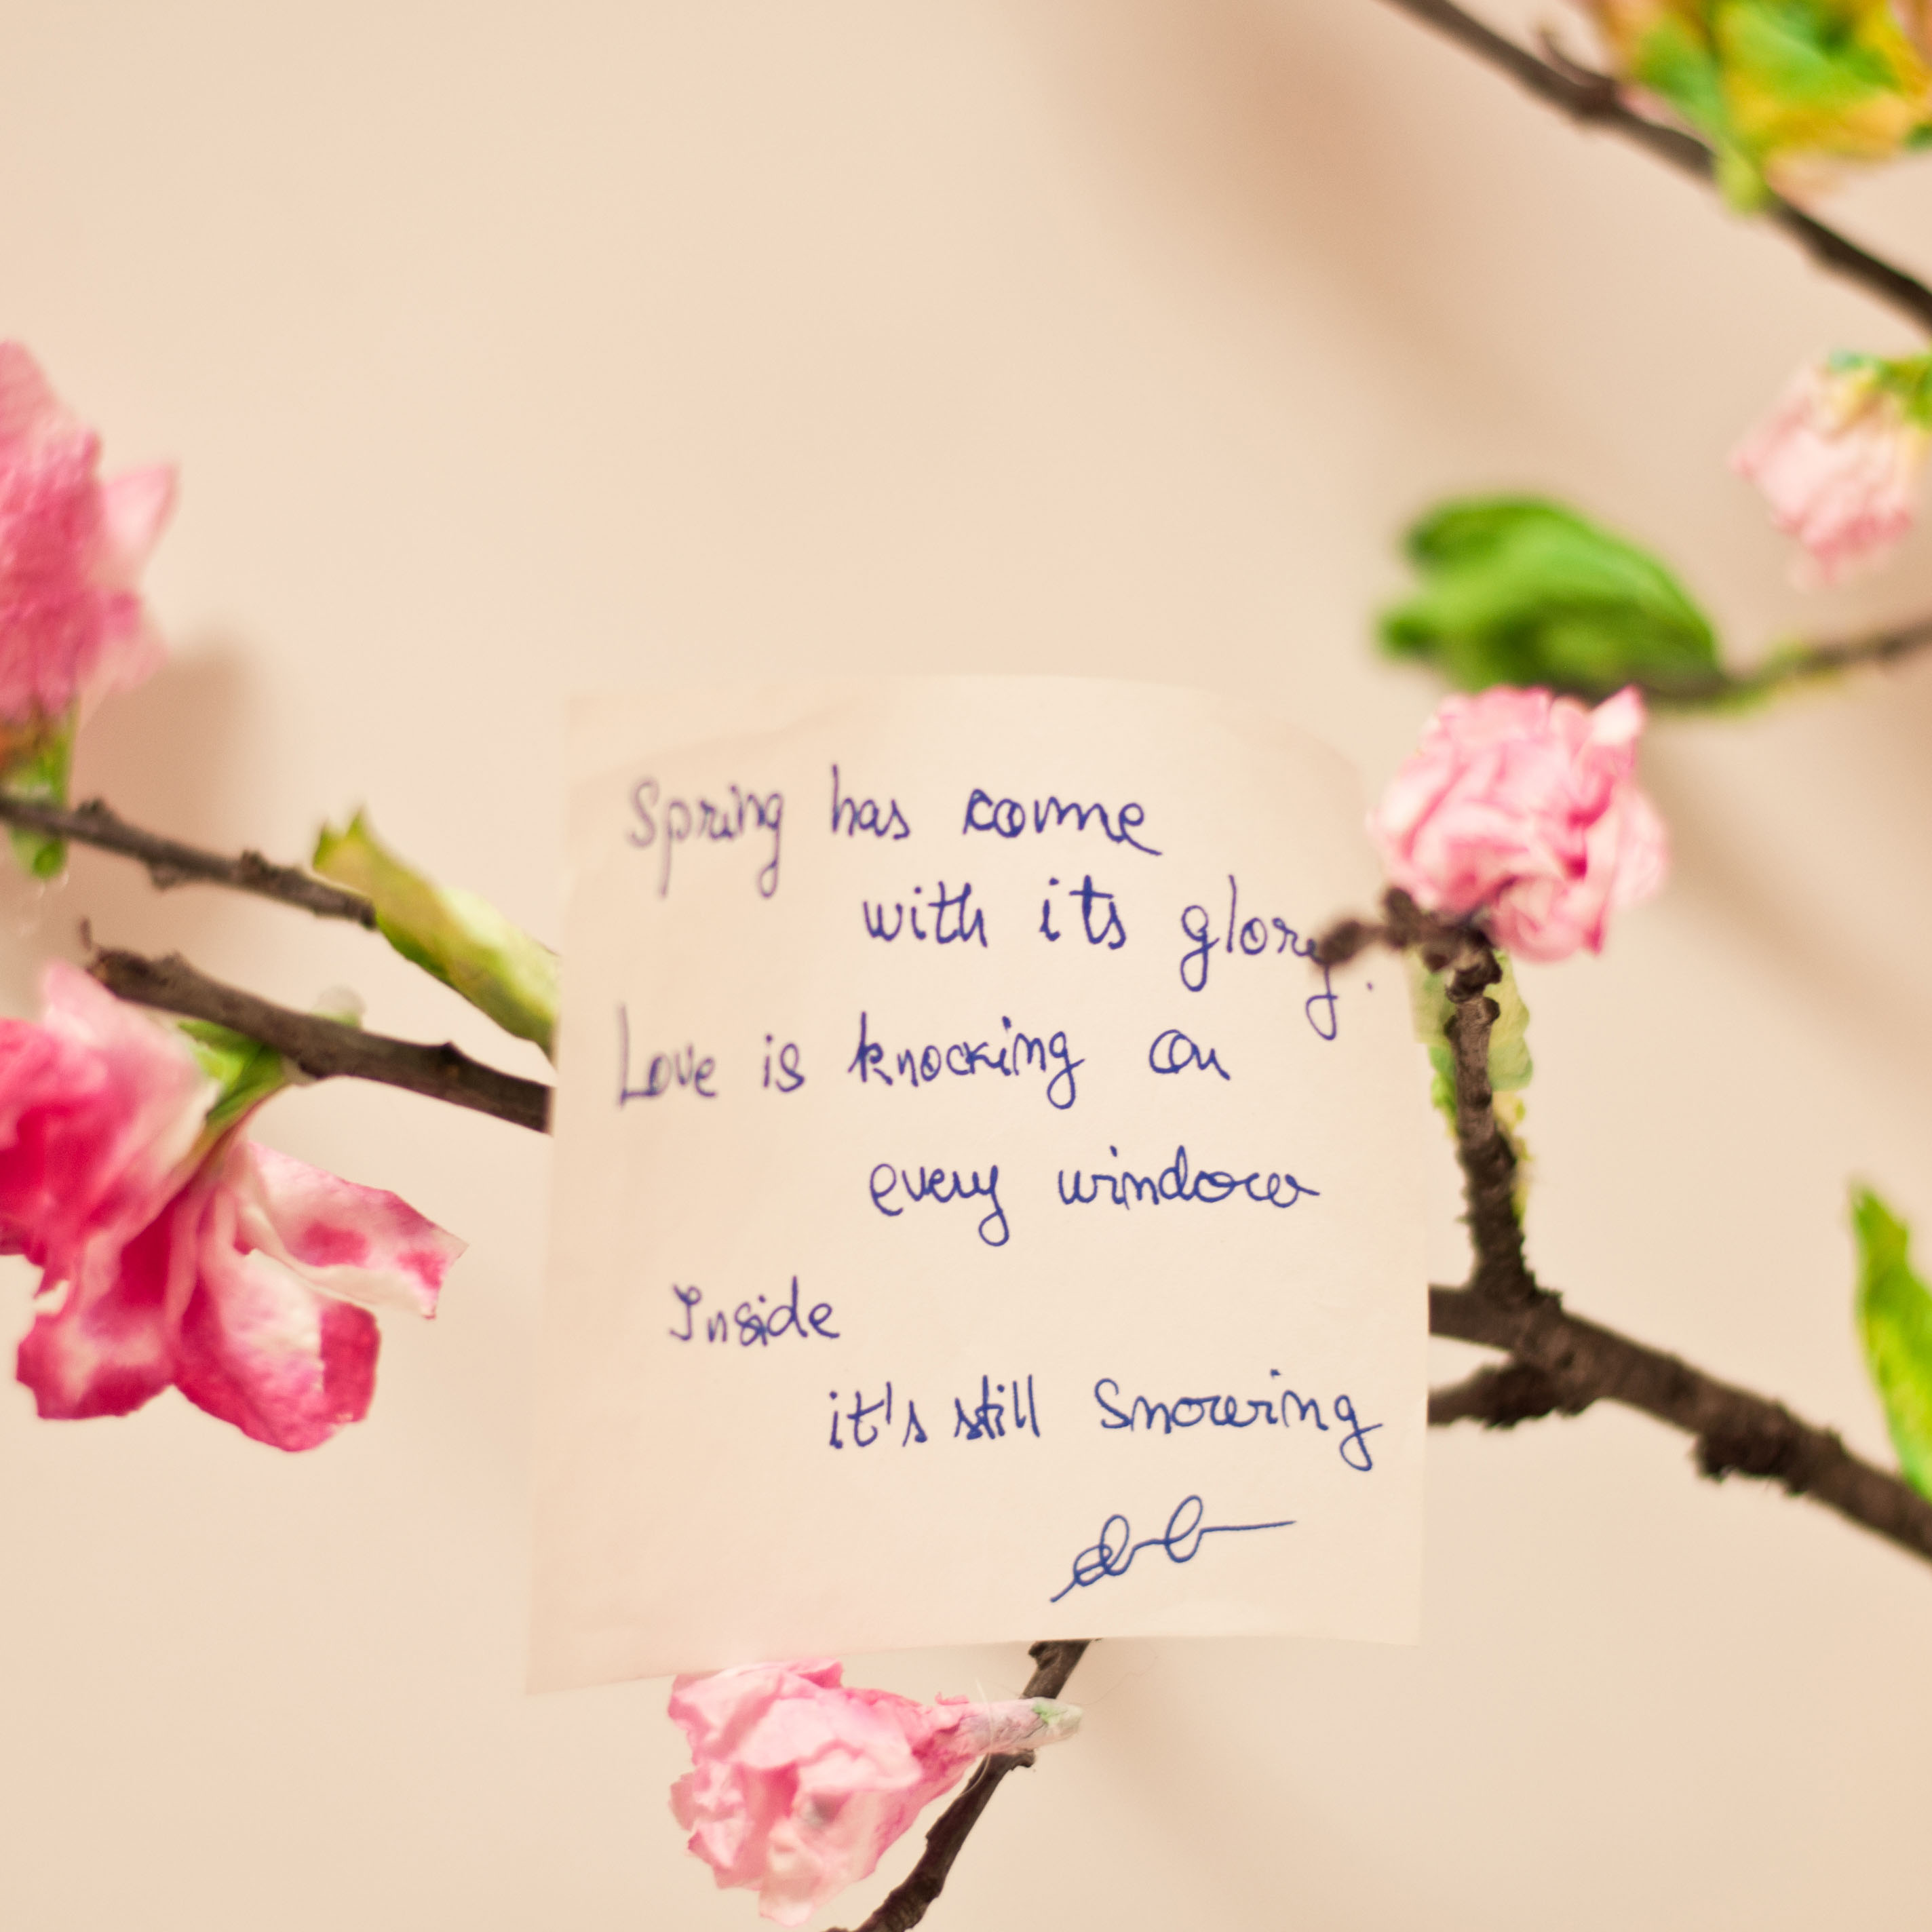 Spring has come
with its glory.
Love is knocking on
every window
Inside
it's still Snowing